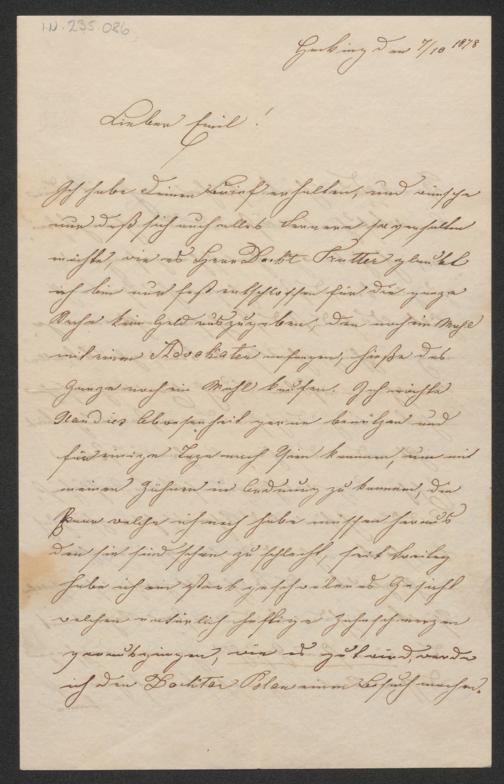 I.N. 235.086
Hacking den 7/10 1878
Lieber Emil!
Ich habe Deinen Brief erhalten, und wünsche
nur daß sich auch alles Fernere so verhalten
möchte, wie es Herr Dockt. Trutter glaubt
ich bin nur fest entschlossen für die ganze
Sache kein Geld auszugeben, den noch ein Mahl
mit einem Advokaten anfangen, hieße das
Ganze noch ein Mahl kaufen. Ich möchte
Abwesenheit gerne benützen und
für einige Tage nach Wien kommen, um mit
meinen Zähnen in Ordnung zu kommen, die
Paar welche ich noch habe müssen heraus
den sie sind schon zu schlecht, seit Freitag
habe ich ein stark geschwollenes Gesicht
welchen natürlich heftige Zahnschmerzen
vorausgingen, wie es gut wird, werde
ich den Docktor einen Besuch machen.